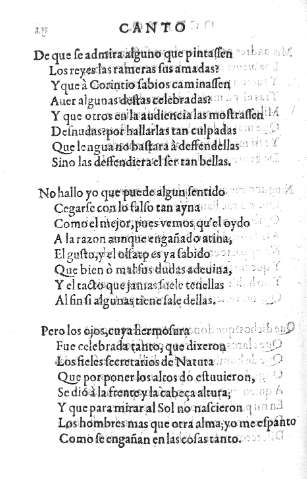 CANTO
De que se admira alguno que pintassen
Los reyes las rameras sus amadas?
Y que à Corintio sabios caminassen
A ver algunas destas celebradas?
Y que otros en la audiencia las mostrassen
Desnudas? por hallarlas tan culpadas
Que lengua no bastara à deffendellas
Sino las deffendiera el ser tan bellas.
No hallo yo que puede algun sentido
Cegarse con lo falso tan ayna
Como el mejor, pues vemos q̃ el oydo
A la razon aunque engañado atina,
El gusto, y el olfato es ya sabido
Que bien ò mal sus dudas adeuina,
Y el tacto que jamas suele tenellas
Al fin si algunas tiene sale dellas.
Pero los ojos, cuya hermosura
Fue celebrada tanto, que dixeron
Los fieles secretarios de Natura
Que por poner los alcos do estuuieron,
Se diò à la frente y la cabeça altura;
Y que para mirar al Sol no nascieron
Los hombres mas que otra alma; yo me espanto
Como se engañan en las cosas tanto.